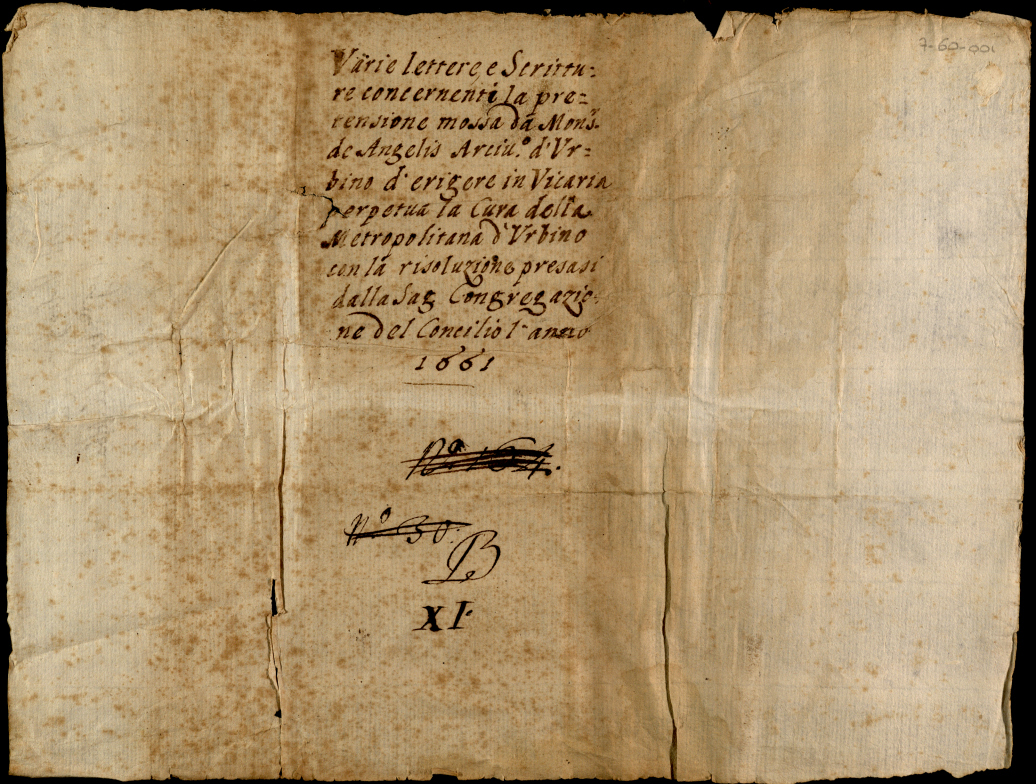 7-60-001
Varie lettere, e Scrittu=
re concernenti la pre=
tensione mossa da Mons.r
de Angelis Arciu.o d'Vr=
bino d'erigere in Vicaria
perpetua la Cura della
Metropolitana d'Vrbino
con la risoluzione presasi
dalla Sag. Congregazio=
ne del Concilio l'anno
1661
N.o 164.
N.o 30.
B
XI.